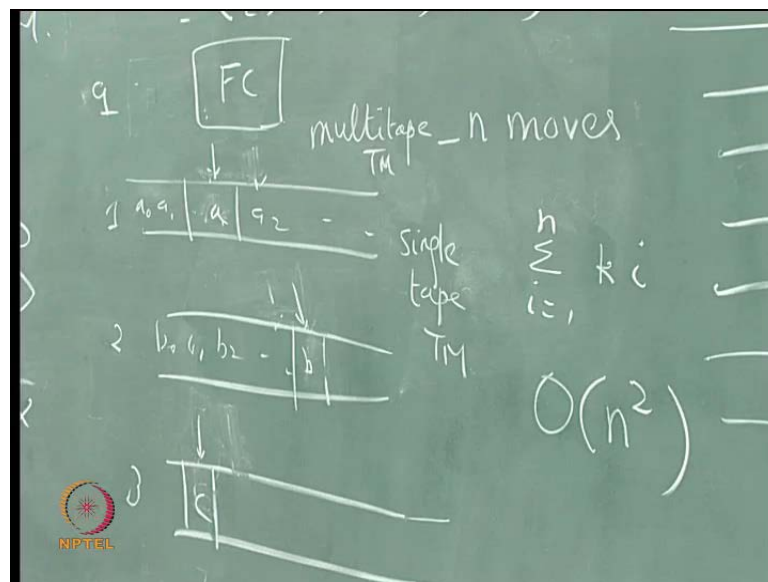 q FC
multitape - n moves
TM
1 a₀ a₁ a a₂ - -
single
tape
TM
n
Σ k i
i=1
2 b₀ b₂ - b
O(n²)
3 c
NPTEL